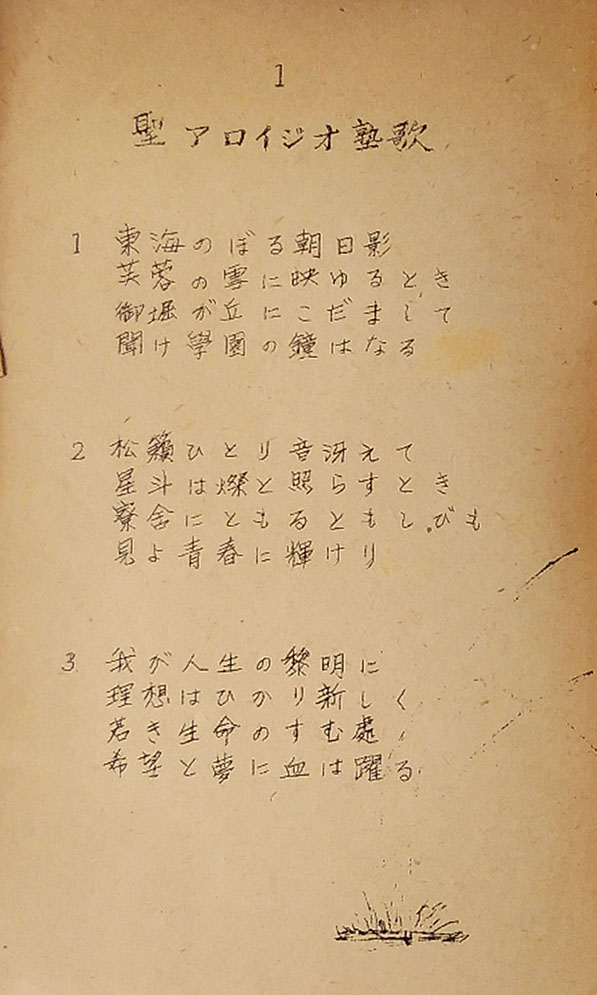 1
聖アロイジオ塾歌
1 東海のぼる朝日影
芙蓉の雪に映ゆるとき
御堀が丘にこだまして
聞け學園の鐘はなる
2 松籟ひとり音冴えて
星斗は燦と照らすとき
寮舎にともるともしびも
見よ青春に輝けり
3 我が人生の黎明に
理想はひかり新しく
若き生命のすむ處
希望と夢に血は躍る